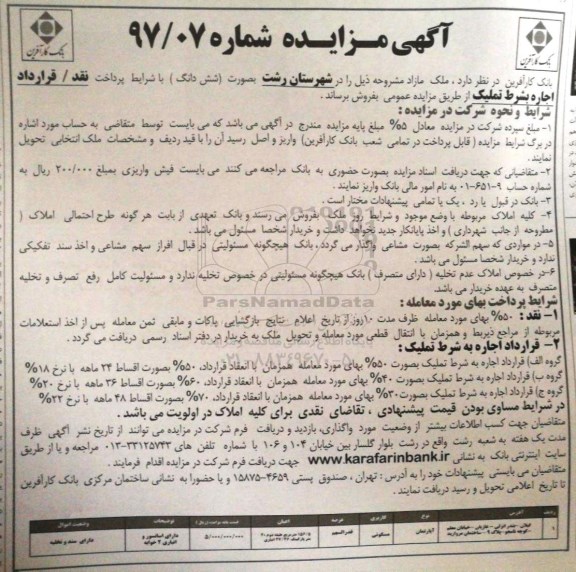 آگهی مزایده شماره ۹۷/۰۷
بانک کارآفرین
بانک کارآفرین
بانک کارآفرین در نظر دارد ، ملک مازاد مشروحه ذیل را در شهرستان رشت بصورت (شش دانگ ) با شرایط پرداخت نقد / قرارداد
اجاره بشرط تملیک از طریق مزایده عمومی بفروش برساند .
شرایط و نحوه شرکت در مزایده :
۱- مبلغ سپرده شرکت در مزایده معادل ۵% مبلغ پایه مزایده مندرج در آگهی می باشد که می بایست توسط متقاضی به حساب مورد اشاره
در برگ شرایط مزایده ( قابل پرداخت در تمامی شعب بانک کارآفرین) واریز و اصل رسید آن را با قید ردیف و مشخصات ملک انتخابی تحویل
نمایند .
۲- متقاضیانی که جهت دریافت اسناد مزایده بصورت حضوری به بانک مراجعه می کنند می بایست فیش واریزی بمبلغ ۲۰۰/۰۰۰ ریال به
شماره حساب ۹-۶۵۱-۰۱ به نام امور مالی بانک واریز نمایند .
۳- بانک در قبول یا رد ، یک یا تمامی پیشنهادات مختار است .
۴- کلیه املاک مربوطه با وضع موجود و شرایط روز ملک بفروش می رسند و بانک تعهدی از بابت هر گونه طرح احتمالی املاک (
مطروحه از جانب شهرداری ) و اخذ پایانکار جدید نخواهد داشت و خریدار شخصا مسئول می باشد .
۵- در مواردی که سهم الشرکه بصورت مشاعی واگذار می گردد ، بانک هیچگونه مسئولیتی در قبال افراز سهم مشاعی و اخذ سند تفکیکی
ندارد و خریدار شخصا مسئول می باشد .
۶- در خصوص املاک عدم تخلیه ( دارای متصرف ) بانک هیچگونه مسئولیتی در خصوص تخلیه ندارد و مسئولیت کامل رفع تصرف و تخلیه
متصرف به عهده خریدار می باشد .
شرایط پرداخت بهای مورد معامله :
۱- نقد : ۵۰% بهای مورد معامله ظرف مدت ۱۰ روز از تاریخ اعلام نتایج بازگشایی پاکات و مابقی ثمن معامله پس از اخذ استعلامات
مربوطه از مراجع ذیربط و همزمان با انتقال قطعی مورد معامله و تحویل ملک به خریدار در دفتر اسناد رسمی دریافت می گردد .
۲- قرارداد اجاره به شرط تملیک :
گروه الف) قرارداد اجاره به شرط تملیک بصورت ۵۰% بهای مورد معامله همزمان با انعقاد قرارداد، ۵۰% بصورت اقساط ۲۴ ماهه با نرخ ۱۸%
گروه ب) قرارداد اجاره به شرط تملیک بصورت ۴۰% بهای مورد معامله همزمان با انعقاد قرارداد، ۶۰% بصورت اقساط ۳۶ ماهه با نرخ ۲۰%
گروه ج) قرارداد اجاره به شرط تملیک بصورت ۳۰% بهای مورد معامله همزمان با انعقاد قرارداد، ۷۰% بصورت اقساط ۴۸ ماهه با نرخ ۲۲%
در شرایط مساوی بودن قیمت پیشنهادی ، تقاضای نقدی برای کلیه املاک در اولویت می باشد .
متقاضیان جهت کسب اطلاعات بیشتر از وضعیت مورد واگذاری، بازدید و دریافت فرم شرکت در مزایده می توانند از تاریخ نشر آگهی ظرف
مدت یک هفته به شعبه رشت واقع در رشت بلوار گلسار بین خیابان ۱۰۴ و ۱۰۶ با شماره تلفن های ۳۳۱۲۵۷۴۳-۰۱۳ مراجعه و یا از طریق
سایت اینترنتی بانک به نشانی www.karafarinbank.ir جهت دریافت فرم شرکت در مزایده اقدام فرمایند .
متقاضیان می بایستی پیشنهادات خود را به آدرس : تهران ، صندوق پستی ۴۶۵۹-۱۵۸۷۵ و یا حضورا به نشانی ساختمان مرکزی بانک کارآفرین
تا تاریخ اعلامی تحویل و رسید دریافت نمایند .
ردیف آدرس نوع کاربری عرصه اعیان قیمت پایه مزایده (ریال) توضیحات وضعیت اموال
۱ آپارتمان مسکونی قدرالسهم ۵/۰۰۰/۰۰۰/۰۰۰ دارای آسانسور و دارای سند و تخلیه
ParsNamadData
۰۲۱-۸۸۳۴۹۶۷۰-۵